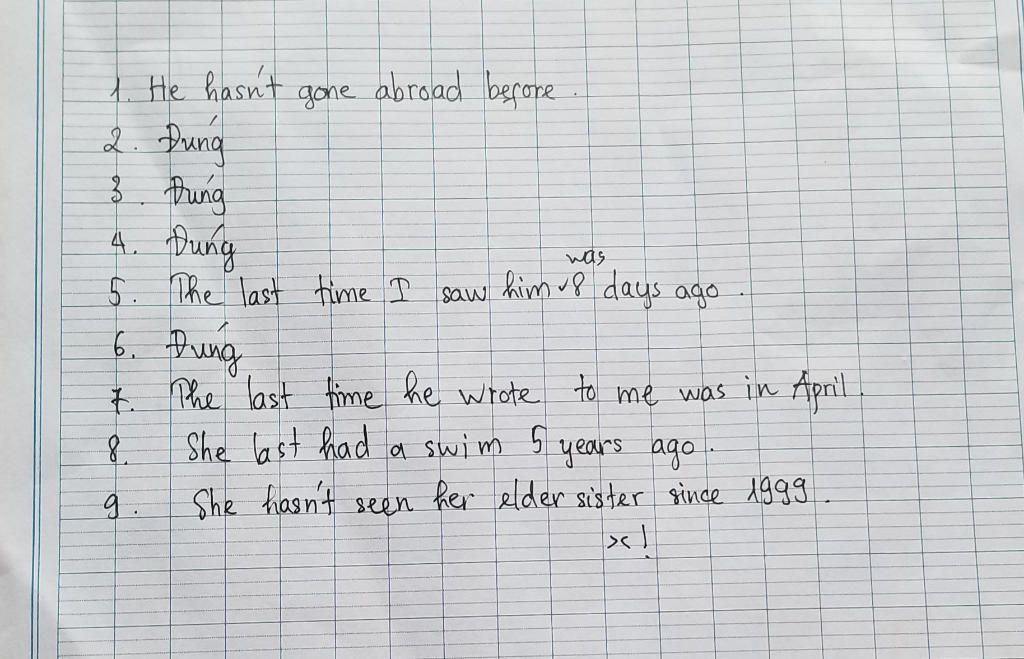 1. He hasn't gone abroad before.
2. Đúng
3. Đúng
4. Đúng
5. The last time I saw him was 8 days ago.
6. Đúng
7. The last time he wrote to me was in April.
8. She last had a swim 5 years ago.
9. She hasn't seen her elder sister since 1999.